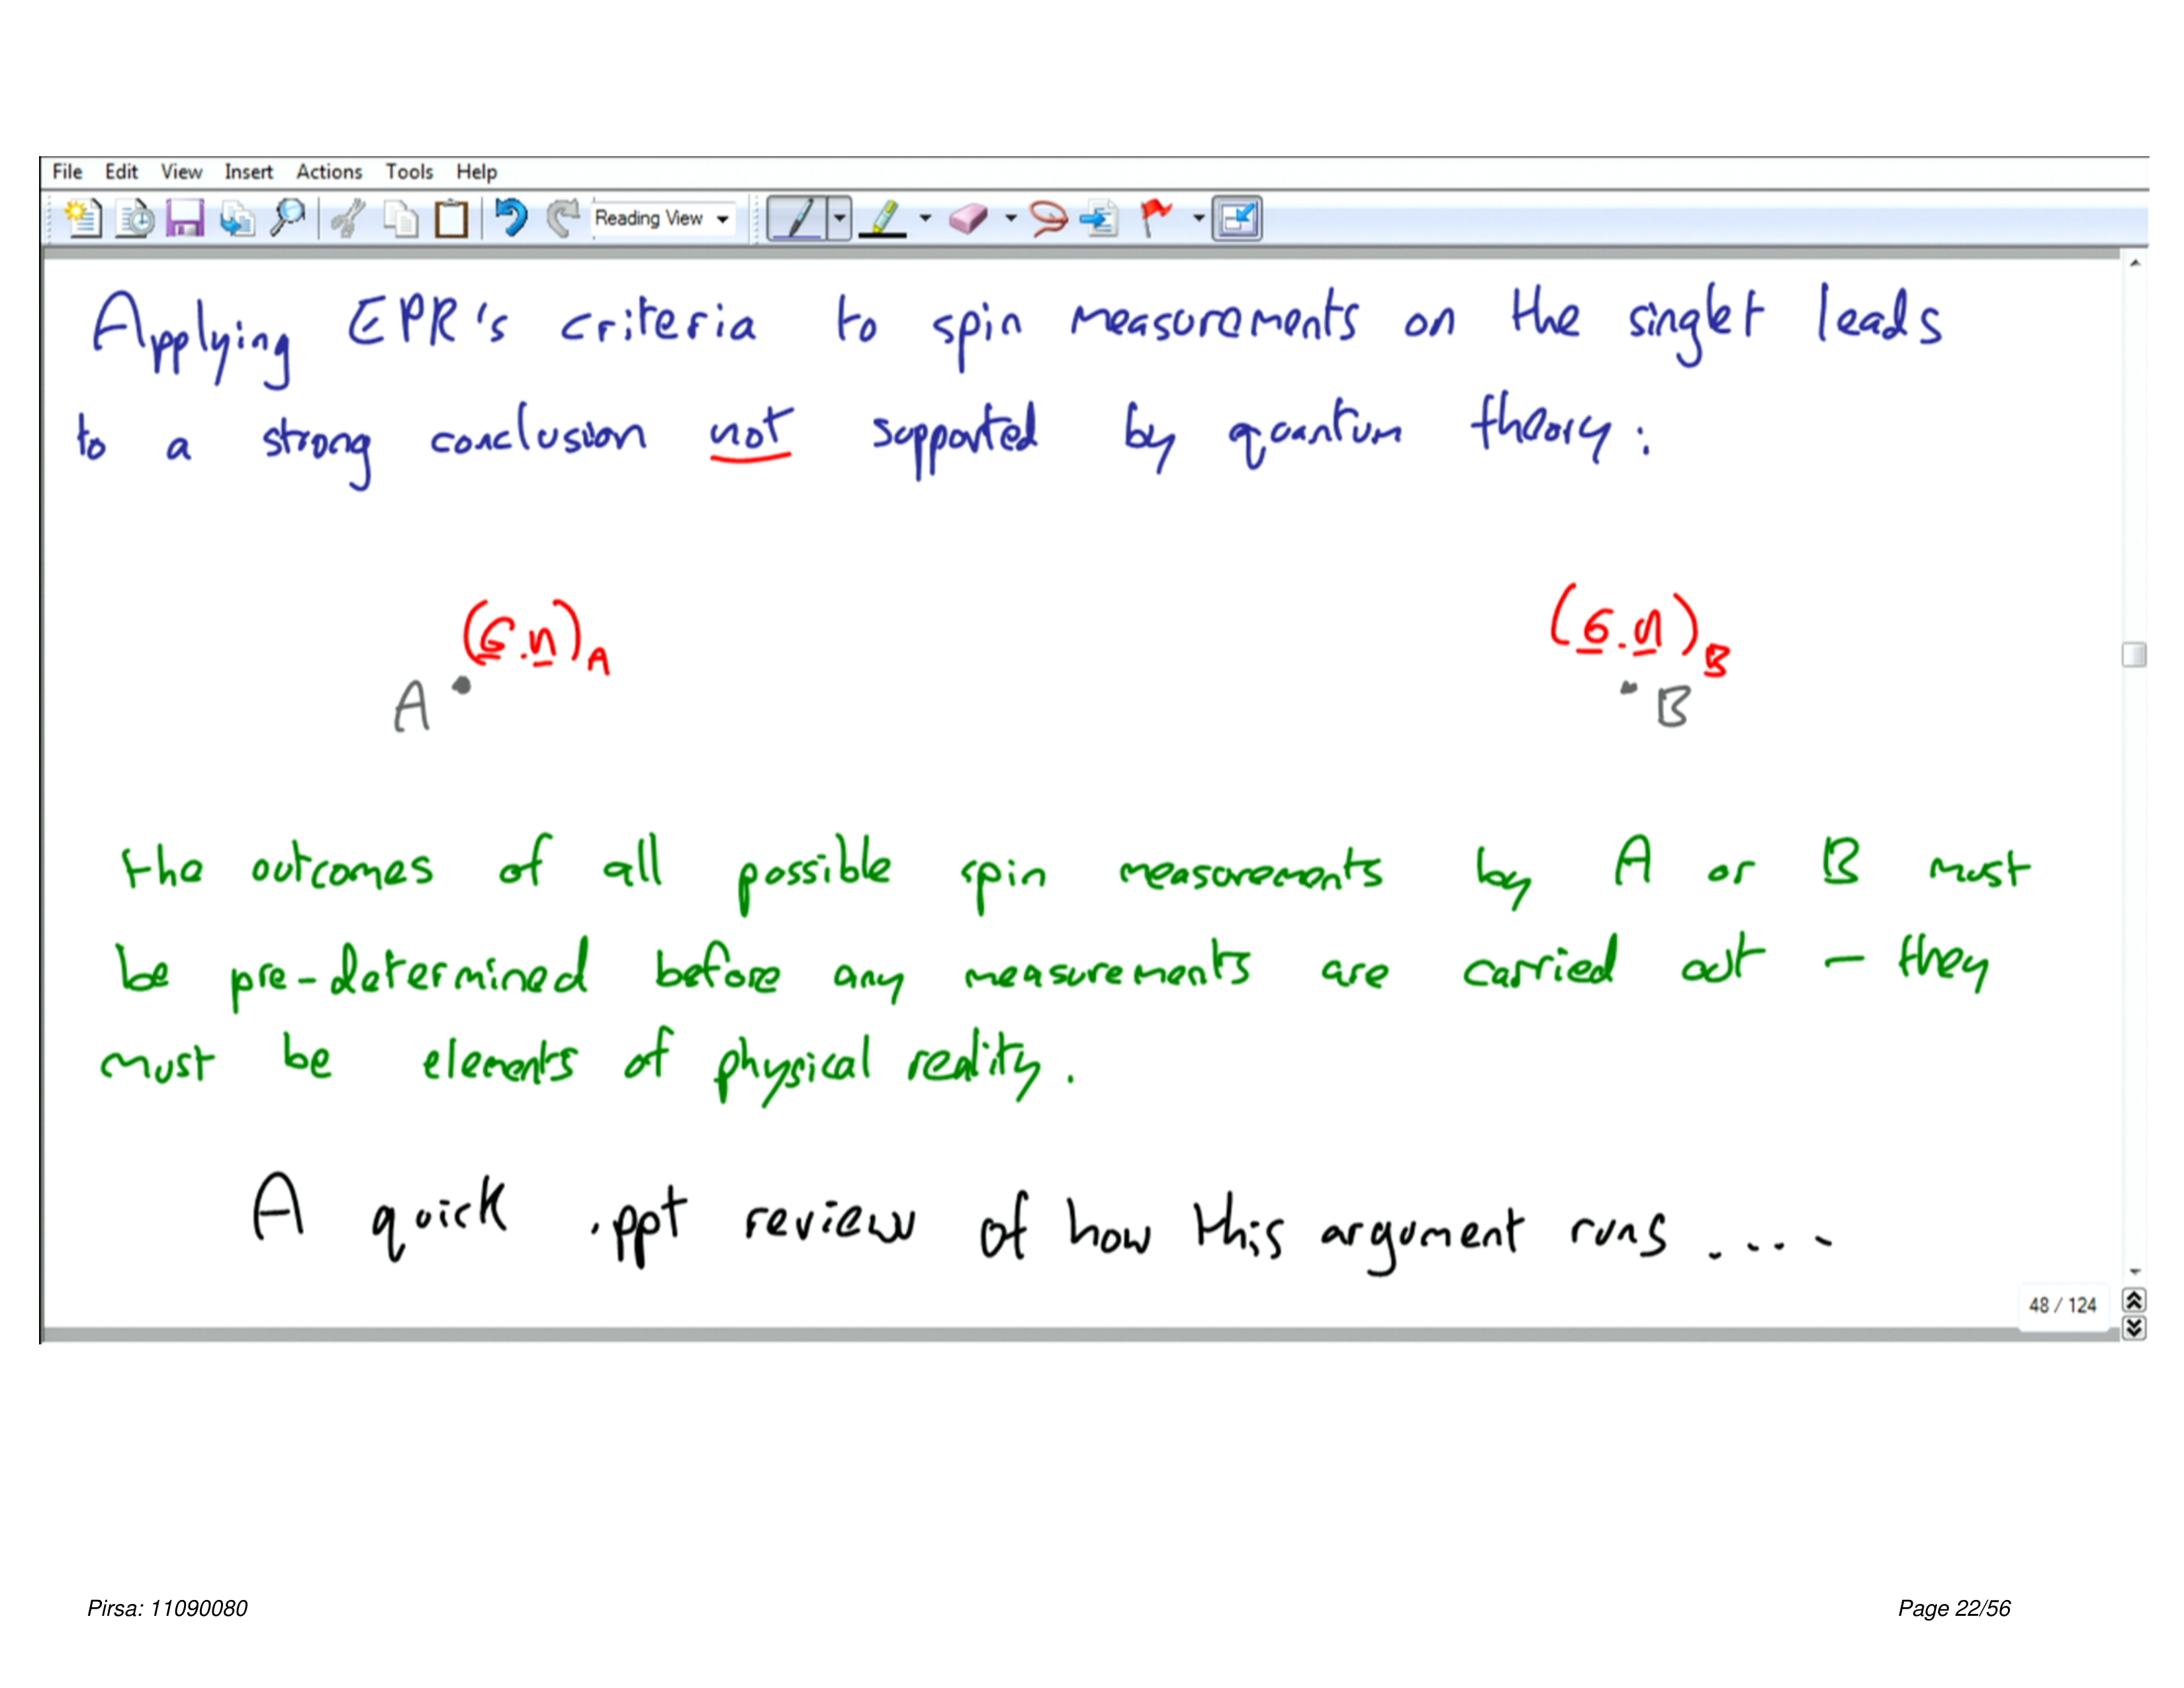 File Edit View Insert Actions Tools Help
Reading View
Applying EPR's criteria to spin measurements on the singlet leads
to a strong conclusion not supported by quantum theory:
(σ.n)A
(σ.n)B
A
B
the outcomes of all possible spin measurements by A or B must
be pre-determined before any measurements are carried out - they
must be elements of physical reality.
A quick .ppt review of how this argument runs ....
48 / 124
Pirsa: 11090080
Page 22/56